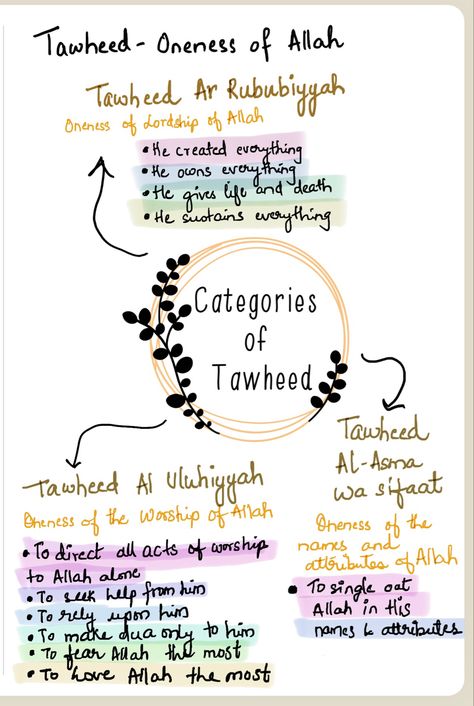 Tawheed - Oneness of Allah
Tawheed Ar Rububiyyah
Oneness of Lordship of Allah
• He created everything
• He owns everything
• He gives life and death
• He sustains everything
Categories
of
Tawheed
Tawheed
Al-Asma
wa sifaat
Oneness of the
names and
attributes of Allah
• To single out
Allah in His
names & attributes
Tawheed Al Uluhiyyah
Oneness of the Worship of Allah
• To direct all acts of worship
to Allah alone
• To seek help from him
• To rely upon him
• To make dua only to him
• To fear Allah the most
• To love Allah the most